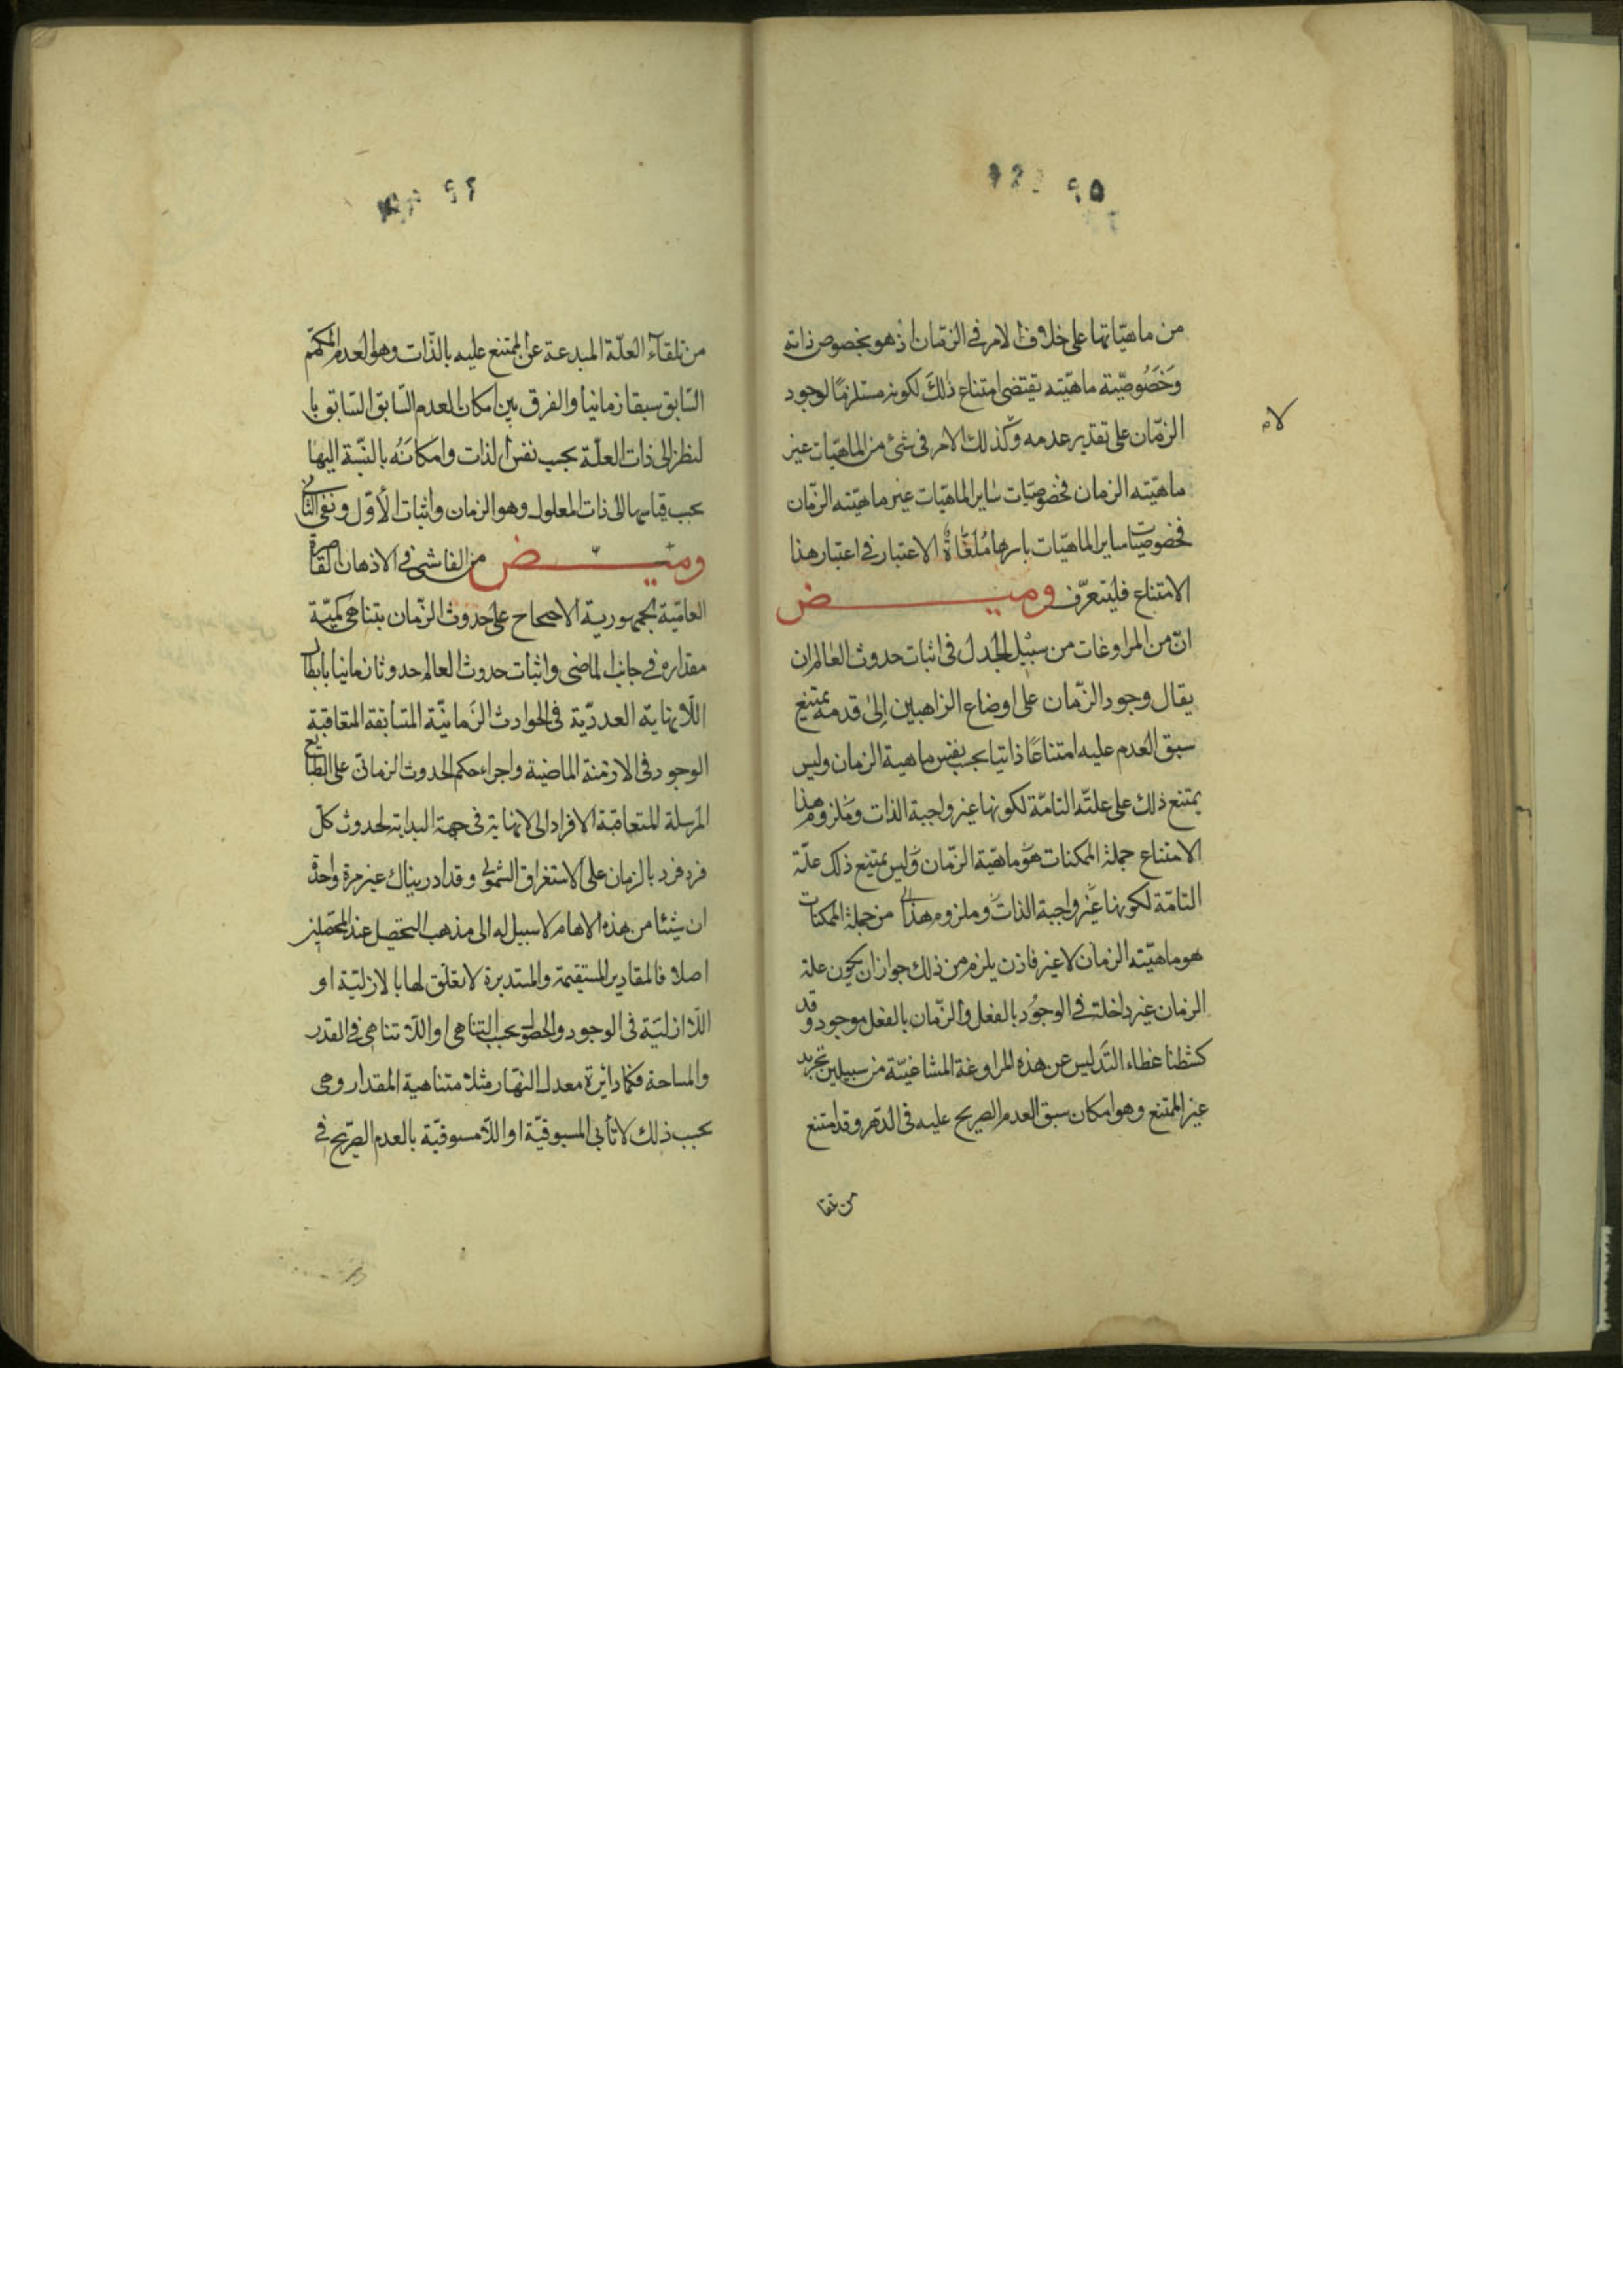 ٩٥
من ماهيّاتها على خلاف الامر فى الزمّان اذ هو بخصوص ذاته
وخَصُوصيّة ماهيّته تقتضى امتناع ذلكَ لكونه مستلزمًا لوجود
الزمّان على تقدير عدمه وكذلك الامر فى شئ من الماهيّات غير
لام
ماهيّته الزمان فخصوصيّات ساير الماهيّات غير ماهيّته الزمّان
فخصوصيّات ساير الماهيّات باسرها مُلغّاةٌ الاعتبار فى اعتبار هذا
الامتناع فليتعرّف وميض
انّ من المراوغات من سبيل الجدل فى اثبات حدوث العالم ان
يقال وجود الزّمان على اوضاع الزاهبين إلى قدمه يمتنع
سبق العدم عليه امتناعًا ذاتيا بحسب نفس ماهية الزمان وليس
يمتنع ذلك على علتّه التامّة لكونها غير واجبة الذات وملزوم هذا
الامتناع جملة الممكنات هو ماهيّة الزمّان وليس يمتنع ذلك علّة
التامّة لكونها غير واجبة الذات وملزوم هذا من جملة الممكنات
هو ماهيّته الزمان لا غير فاذن يلزم من ذلك جواز ان يكون علة
الزمان غير داخلة فى الوجُود بالفعل والزّمان بالفعل موجود وقد
كشطنا غطاء التَدليس عن هذه المراوغة المشاغبيّة من سبيلين تجريد
غير الممتنع وهو امكان سبق العدم الصريح عليه فى الدّهر وقد امتنع
من تلقا
٩٦
من تلقآء العلّة المبدعة عن الممتنع عليه بالذّات وهو العدم المكمّم
السّابق سبقا زمانيا والفرق بين امكان العدم السّابق السّابق با
لنظر الى ذات العلّة بحسب نفس الذات وامكانَهُ بالنّسبة اليها
بحسب قياسها الى ذات المعلول وهو الزمان واثبات الأوّل ونفى الثانى
وميض من الفاشى فى الاذهان القاصرة
العامّية الجمهورية الاحتجاج على حدوث الزّمان بتناهى كميّة
مقداره فى جانب الماضى واثبات حدوث العالم حدوثا زمانيا بابطال
اللّانهاية العدديّة فى الحوادث الزَمانيّة المتسابقة المتعاقبة
الوجود فى الازمنة الماضية واجراء حكم الحدوث الزمانىّ على الطبايع
المرسلة المتعاقبة الافراد الى لا نهاية فى جهة البداية لحدوث كلّ
فرد فرد بالزمان على الاستغراق الشمولى وقد ادريناك غير مرة واحدة
ان شيئا من هذه الاهام لا سبيل له الى مذهب التحصيل عند المحصّلين
اصلا فالمقادير المستقيمة والمستديرة لا تعلّق لها بالازليّة او
اللّا ازليَة فى الوجود والحصول بحسب التناهى او اللّا تناهى فى القدر
والمساحة فكما دائرة معدل النهّار مثلا متناهية المقدار وهى
بحسب ذلك لا تأبى المسبوقيّة او اللّامسبوقيّة بالعدم الصّريح فى